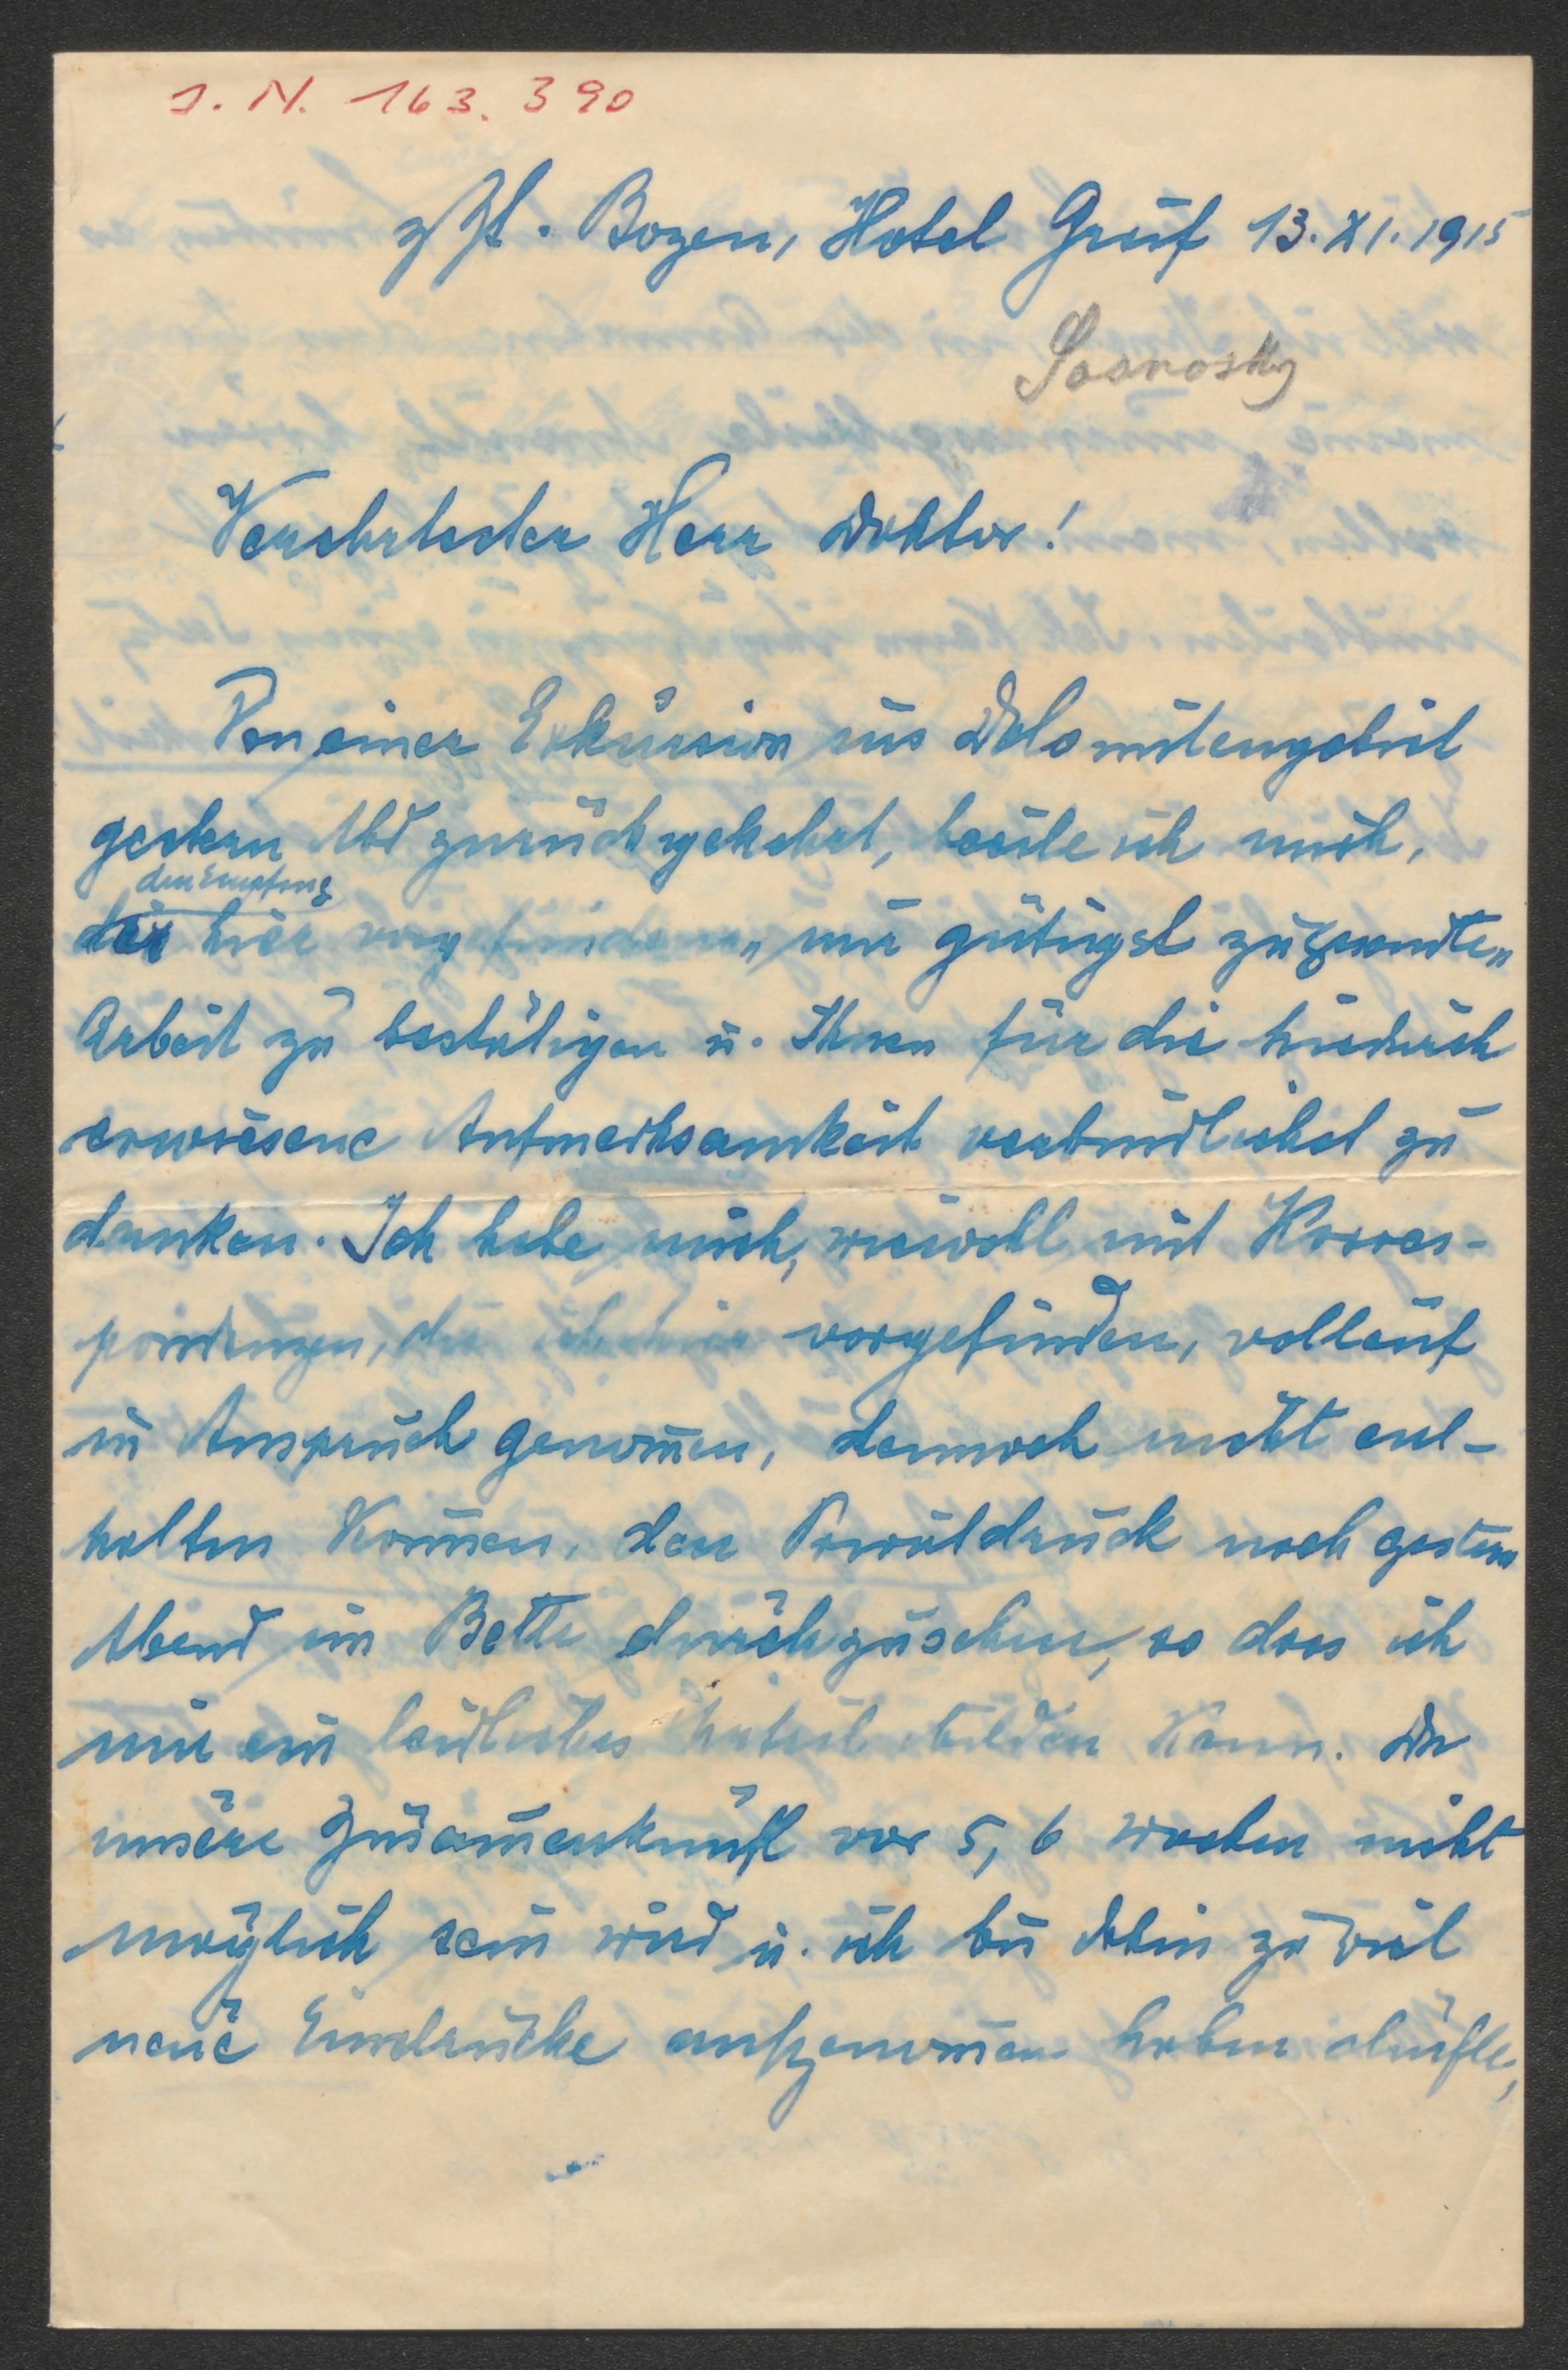 J. N. 163.390
z Zt. Bozen, Hotel Greif 13. XI. 1915
Sosnosky
Verehrtester Herr Doktor!
Von einer Exkursion ins Dolomitengebiet
gestern Abd zurückgekehrt, beeile ich mich,
den Empfang
der hier vorgefundenen, mir gütigst zugesandten
Arbeit zu bestätigen u. Ihnen für die hiedurch
erwiesene Aufmerksamkeit verbindlichst zu
danken. Ich habe mich, wiewohl mit Korres-
pondenzen, die ich hier vorgefunden, vollauf
in Anspruch genom̅en, dennoch nicht ent-
halten kön̅en, den Privatdruck noch gestern
Abend im Bette durchzusehen, so dass ich
mir ein leidliches Urteil bilden kann. Da
unsere Zusam̅enkunft vor 5, 6 Wochen nicht
möglich sein wird u. ich bis dahin zu viel
neue Eindrücke aufgenom̅en haben dürfte,